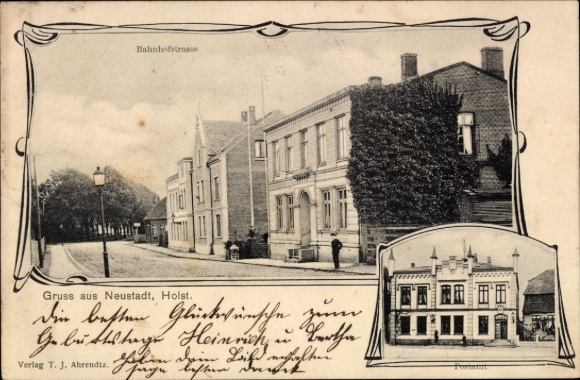 Bahnhofstrasse
Gruss aus Neustadt, Holst.
Die besten Glückwünsche zum
Geburtstage Heinrich u Bertha
dein Bild erhalten
sage besten Dank
Verlag T. J. Ahrendtz.
Postamt